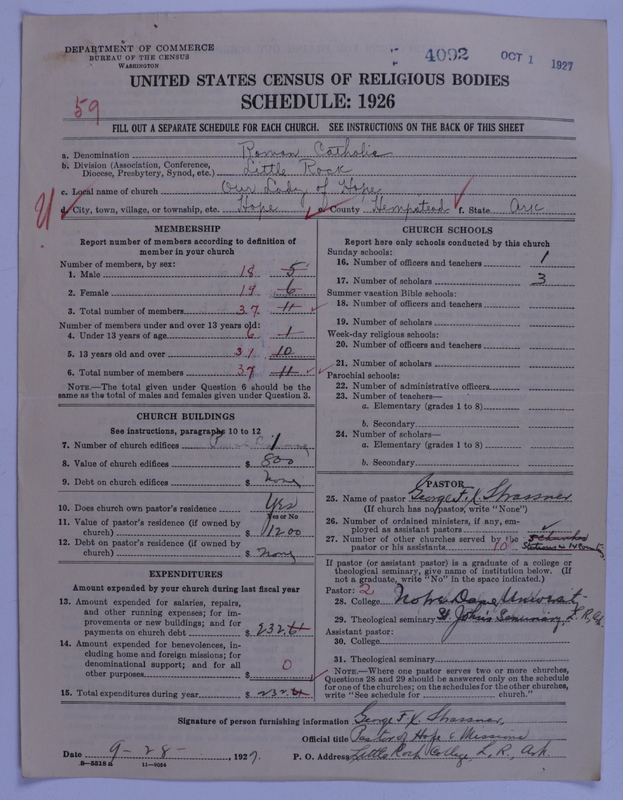 DEPARTMENT OF COMMERCE
BUREAU OF THE CENSUS
WASHINGTON
4092 OCT 1 1927
UNITED STATES CENSUS OF RELIGIOUS BODIES
SCHEDULE: 1926
59
FILL OUT A SEPARATE SCHEDULE FOR EACH CHURCH. SEE INSTRUCTIONS ON THE BACK OF THIS SHEET
a. Denomination Roman Catholic
b. Division (Association, Conference, Diocese, Presbytery, Synod, etc.) Little Rock
c. Local name of church Our Lady of Hope
d. City, town, village, or township, etc. Hope e. County Hempstead f. State Ark
MEMBERSHIP
Report number of members according to definition of
member in your church
Number of members, by sex:
1. Male 18 5
2. Female 19 6
3. Total number of members 37 11
Number of members under and over 13 years old:
4. Under 13 years of age 6 1
5. 13 years old and over 31 10
6. Total number of members 37 11
NOTE.—The total given under Question 6 should be the
same as the total of males and females given under Question 3.
CHURCH BUILDINGS
See instructions, paragraphs 10 to 12
7. Number of church edifices 1
8. Value of church edifices $ 800
9. Debt on church edifices $ None
10. Does church own pastor's residence? Yes
Yes or No
11. Value of pastor's residence (if owned by
church) $ 1200
12. Debt on pastor's residence (if owned by
church) $ None
EXPENDITURES
Amount expended by your church during last fiscal year
13. Amount expended for salaries, repairs,
and other running expenses; for im-
provements or new buildings; and for
payments on church debt $
14. Amount expended for benevolences, in-
cluding home and foreign missions; for
denominational support; and for all
other purposes $ 0
15. Total expenditures during year $
CHURCH SCHOOLS
Report here only schools conducted by this church
Sunday schools:
16. Number of officers and teachers 1
17. Number of scholars 3
Summer vacation Bible schools:
18. Number of officers and teachers
19. Number of scholars
Week-day religious schools:
20. Number of officers and teachers
21. Number of scholars
Parochial schools:
22. Number of administrative officers
23. Number of teachers—
a. Elementary (grades 1 to 8)
b. Secondary
24. Number of scholars—
a. Elementary (grades 1 to 8)
b. Secondary
PASTOR
25. Name of pastor George F. X. Strassner
(If church has no pastor, write "None")
26. Number of ordained ministers, if any, em-
ployed as assistant pastors
27. Number of other churches served by the
pastor or his assistants 10
If pastor (or assistant pastor) is a graduate of a college or
theological seminary, give name of institution below. (If
not a graduate, write "No" in the space indicated.)
Pastor: 2
28. College Notre Dame
29. Theological seminary St. John's Seminary L. R.
Assistant pastor:
30. College
31. Theological seminary
NOTE.—Where one pastor serves two or more churches,
Questions 28 and 29 should be answered only on the schedule
for one of the churches; on the schedules for the other churches,
write "See schedule for church."
Signature of person furnishing information George F. X. Strassner
Official title Pastor of Hope & Missions
Date 9-28-, 1927. P. O. Address Little Rock College, L. R., Ark.
8-5518a 11-9054